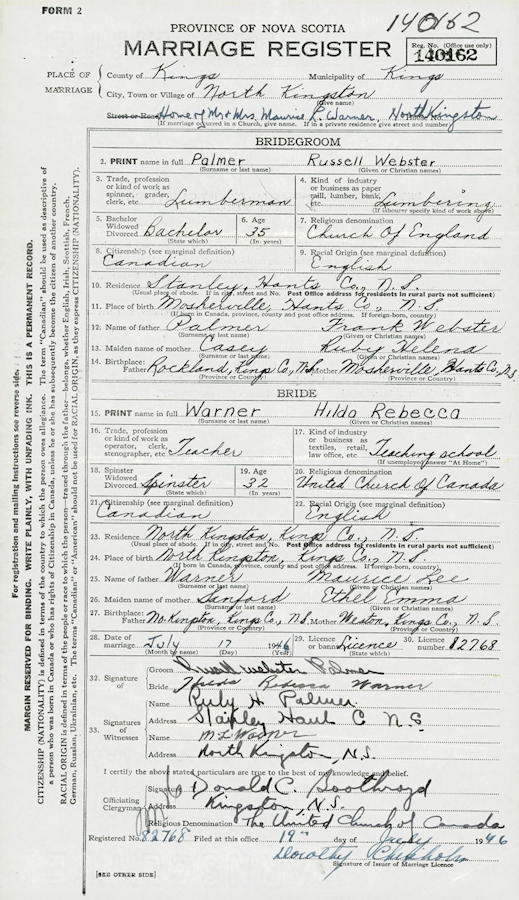 FORM 2
140162
PROVINCE OF NOVA SCOTIA
MARRIAGE REGISTER
Reg. No. (Office use only)
140162
PLACE OF MARRIAGE
County of Kings Municipality of Kings
City, Town or Village of North Kingston
(Give name)
Street or Road Home of Mr & Mrs. Maurice L. Warner, North Kingston
(If marriage occurred in a Church, give name. If in a private residence give street and number)
BRIDEGROOM
2. PRINT name in full Palmer Russell Webster
(Surname or last name) (Given or Christian names)
3. Trade, profession or kind of work as spinner, grader, clerk, etc. Lumberman
4. Kind of industry or business as paper mill, lumber, bank, etc. Lumbering
(If labourer specify kind of work above)
5. Bachelor Widowed Divorced Bachelor
(State which)
6. Age 35
(In years)
7. Religious denomination
Church Of England
8. Citizenship (see marginal definition)
Canadian
9. Racial Origin (see marginal definition)
English
10. Residence Stanley, Hants Co., N.S.
(Usual place of abode. If in city, street and No. Post Office address for residents in rural parts not sufficient)
11. Place of birth Mosherville, Hants Co., N.S.
(If born in Canada, province, county and post office address. If foreign-born, country)
12. Name of father Palmer Frank Webster
(Surname or last name) (Given or Christian names)
13. Maiden name of mother Casey Ruby Helena
(Surname or last name) (Given or Christian names)
14. Birthplace: Father Rockland, Kings Co., N.S. Mother Mosherville, Hants Co., N.S.
(Province or Country) (Province or Country)
BRIDE
15. PRINT name in full Warner Hilda Rebecca
(Surname or last name) (Given or Christian names)
16. Trade, profession or kind of work as operator, clerk, stenographer, etc. Teacher
17. Kind of industry or business as textiles, retail, law office, etc. Teaching school
(If unemployed answer "At Home")
18. Spinster Widowed Divorced Spinster
(State which)
19. Age 32
(In years)
20. Religious denomination
United Church Of Canada
21. Citizenship (see marginal definition)
Canadian
22. Racial Origin (see marginal definition)
English
23. Residence North Kingston, Kings Co., N.S.
(Usual place of abode. If in city and No. Post Office address for residents in rural parts not sufficient)
24. Place of birth North Kingston, Kings Co., N.S.
(If born in Canada, province, county and post office address. If foreign-born, country)
25. Name of father Warner Maurice Lee
(Surname or last name) (Given or Christian names)
26. Maiden name of mother Sanford Ethel Emma
(Surname or last name) (Given or Christian names)
27. Birthplace: Father No. Kingston, Kings Co., N.S. Mother Weston, Kings Co., N.S.
(Province or Country) (Province or Country)
28. Date of marriage July 1946
(Month by name) (Day) (Year)
29. Licence or Banns Licence
30. Licence number 82768
32. Signature of
Groom Russell Webster Palmer
Bride Hilda Rebecca Warner
33. Signatures of Witnesses
Name Ruby H. Palmer
Address Stanley Hants C N S
Name M L Warner
Address North Kingston, N.S.
I certify the above stated particulars are true to the best of my knowledge and belief.
Officiating Clergyman
Signature Donald C. Soothroyd
Address Kingston, N.S.
Religious Denomination The United Church of Canada
Registered No. 82768 Filed at this office 19th day of July 1946
Dorothy Chisholm
Signature of Issuer of Marriage Licence
[SEE OTHER SIDE]
For registration and mailing instructions see reverse side.
MARGIN RESERVED FOR BINDING. WRITE PLAINLY, WITH UNFADING INK. THIS IS A PERMANENT RECORD.
CITIZENSHIP (NATIONALITY) is defined in terms of the country to which the person owes allegiance. The term "Canadian" should be used as descriptive of
a person who was born in Canada or who has rights of Citizenship in Canada, unless he or she has subsequently become the citizen of another country.
RACIAL ORIGIN is defined in terms of the people or race to which the person—traced through the father—belongs, whether English, Irish, Scottish, French,
German, Russian, Ukrainian, etc. The terms "Canadian" or "American" should not be used for RACIAL ORIGIN, as they express CITIZENSHIP (NATIONALITY).